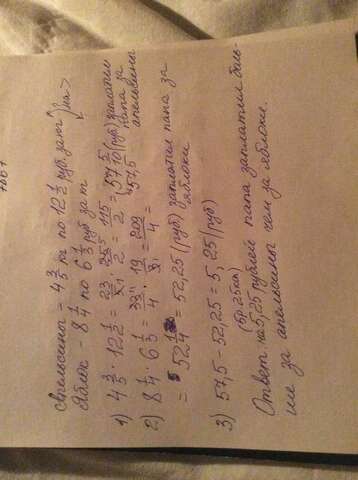 №667
Апельсины - 4 3/5 кг по 12 1/2 руб. за кг } На>
Яблок - 8 1/4 по 6 1/3 руб за кг
1) 4 3/5 · 12 1/2 = 23/5 · 25/2 = 115/2 = 57 5/10 (руб) заплатил папа за апельсины
57,5
2) 8 1/4 · 6 1/3 = 33/4 · 19/3 = 209/4 =
= 52 1/4 = 52,25 (руб) заплатил папа за яблоки
3) 57,5 - 52,25 = 5,25 (руб)
(5р. 25коп)
Ответ на 5,25 рублей папа заплатил боль-
ше за апельсины чем за яблоки.